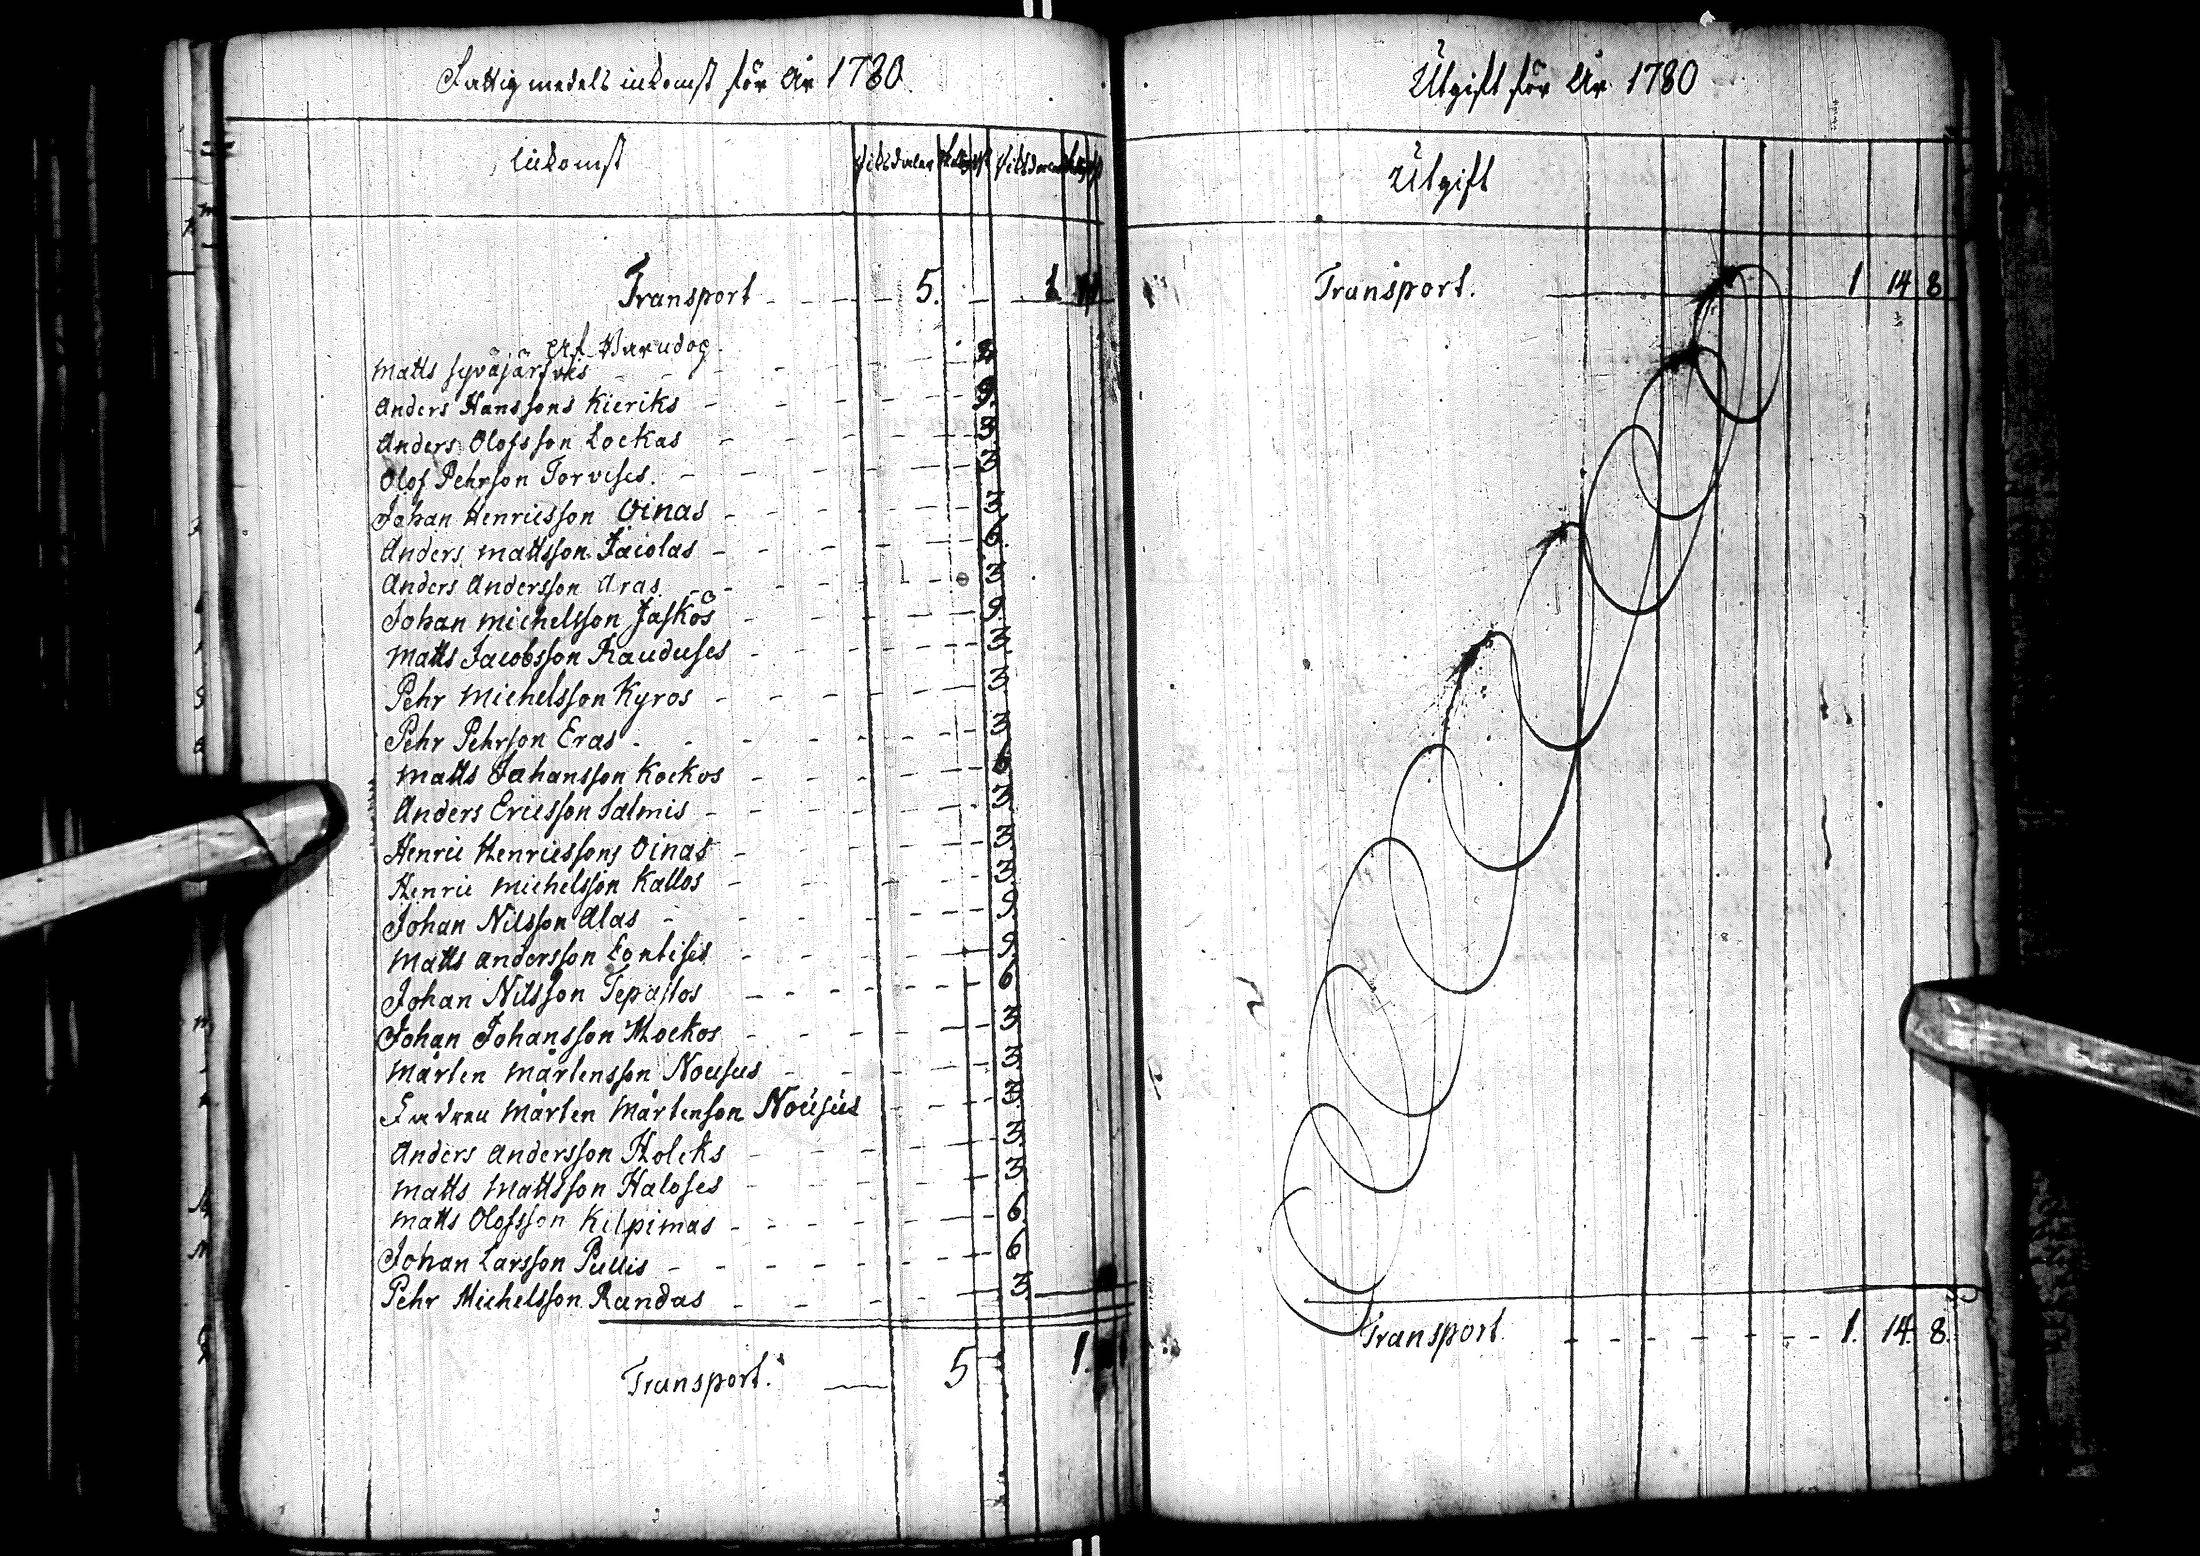 Fattigmedels inkomst för År 1780
Inkomst
Riksdaler
Transport 5. 1
Af
Matts Syväjärfves
Anders Hanssons Kieriks 6.
Anders Olofsson Lockas 3.
Olof Pehrson Torvises. 3
Johan Henricsson Oinas 3.
Anders Mattsson Jaiolas 6.
Anders Andersson Aras 3
Johan Michelsson Jaskös 2
Matts Jacobsson Rauduses 3.
Pehr Michelsson Kyros 3.
Pehr Pehrson Eras 3
Matts Johansson Kockos 6
Anders Ericsson Salmis 3.
Henric Henricssons Oinas 3
Henric Michelsson Kallos 3.
Johan Nilsson Alas 2
Matts Andersson 2
Johan Nilsson Tepastos 6
Johan Johansson Mockos 3
Mårten Mårtensson Nousus 3
Mårten Mårtenson Nousus 3.
Anders Andersson Holcks 3.
Matts Mattsson Haloses 3
Matts Olofsson Kilpimas 6.
Johan Larsson Pullis 6
Pehr Michelsson Randas 3
Transport. 5 1.
Utgift för År 1780
Utgift
Transport. 1 14 8
Transport. 1. 14. 8.